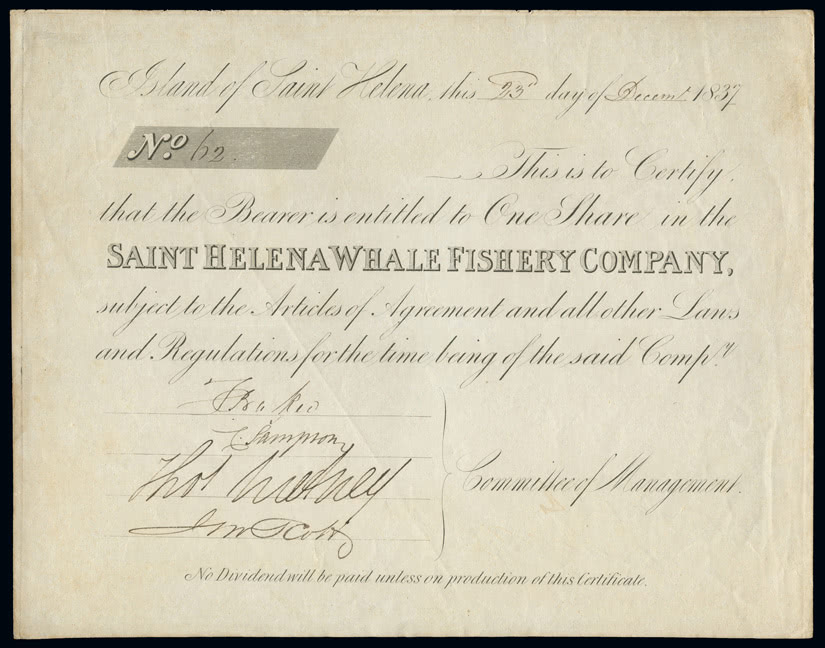 Island of Saint Helena, this 23d day of Decemr. 1837
No. 62.
This is to Certify,
that the Bearer is entitled to One Share in the
SAINT HELENA WHALE FISHERY COMPANY,
subject to the Articles of Agreement and all other Laws
and Regulations for the time being of the said Compy.
Sampson
Thos
Jno Scott
Committee of Management.
No Dividend will be paid unless on production of this Certificate.